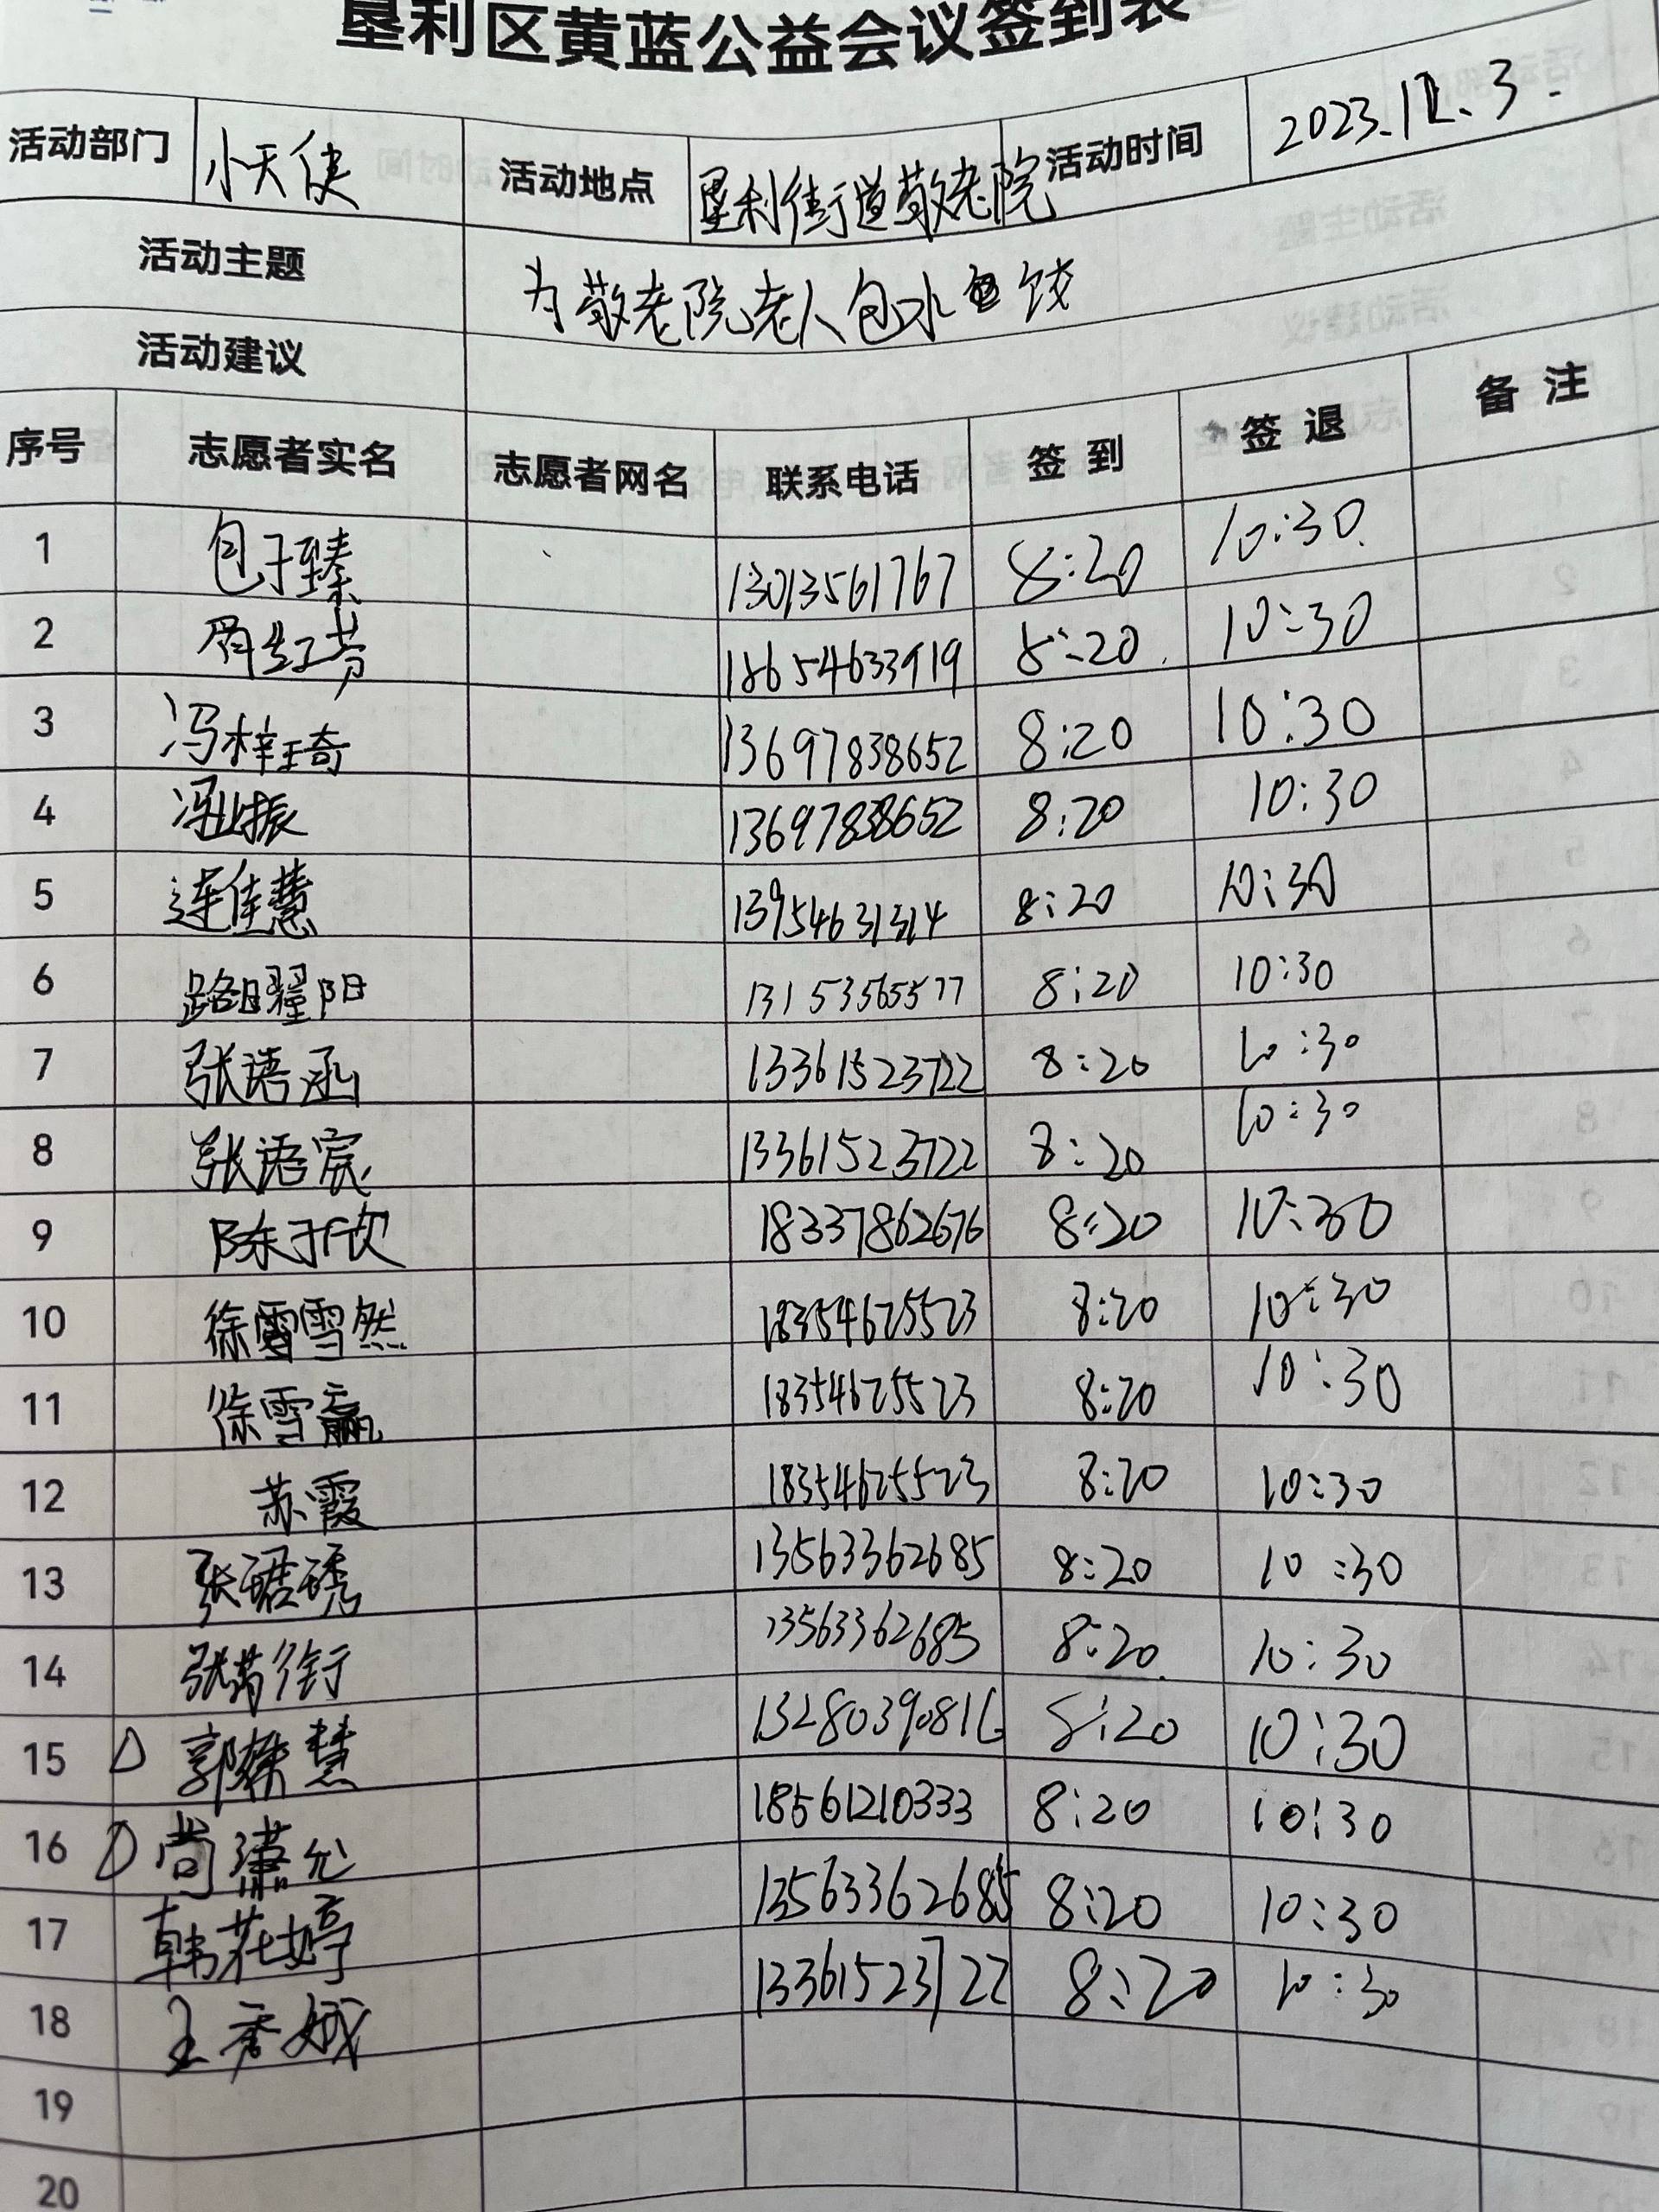 垦利区黄蓝公益会议签到表
活动部门 小天使 活动地点 垦利街道敬老院 活动时间 2023.12.3.
活动主题 为敬老院老人包水饺
活动建议
序号 志愿者实名 志愿者网名 联系电话 签到 签退 备注
1 包于臻 13013561767 8:20 10:30
2 周红芳 18654633919 8:20 10:30
3 冯梓琦 13697838652 8:20 10:30
4 冯业振 13697838652 8:20 10:30
5 连佳慧 13954631314 8:20 10:30
6 路曜阳 13153565577 8:20 10:30
7 张语涵 13361523722 8:20 10:30
8 张语宸 13361523722 8:20 10:30
9 陈于欣 18337862676 8:20 10:30
10 徐雪然 18354625523 8:20 10:30
11 徐雪赢 18354625523 8:20 10:30
12 苏霞 18354625523 8:20 10:30
13 张珺琇 13563362685 8:20 10:30
14 张芮衔 13563362685 8:20 10:30
15 郭慧 13280390816 8:20 10:30
16 尚潇允 18561210333 8:20 10:30
17 韩花婷 13563362685 8:20 10:30
18 王秀娥 13361523722 8:20 10:30
19
20